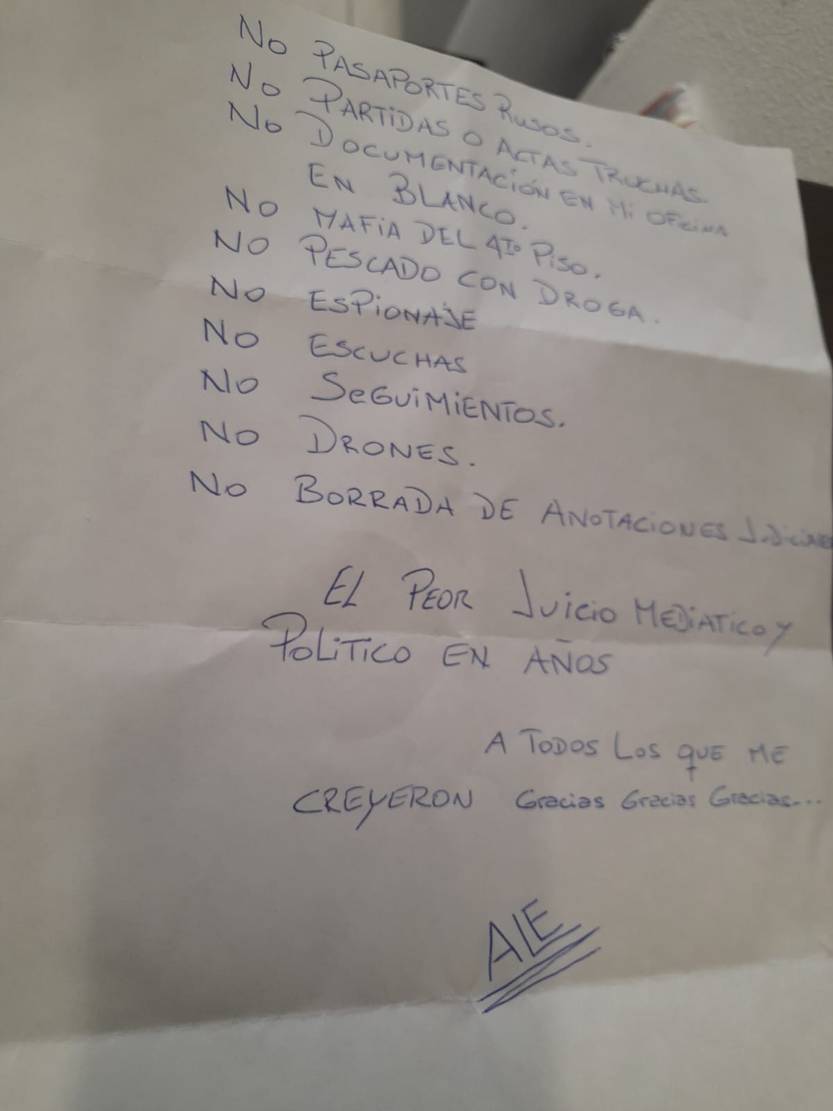 No PASAPORTES RUSOS.
No PARTIDAS O ACTAS TRUCHAS.
No DOCUMENTACIÓN EN Mi OFICINA
EN BLANCO.
No MAFIA DEL 4TO PISO.
NO PESCADO CON DROGA.
NO ESPIONAJE
NO ESCUCHAS
NO SEGUIMIENTOS.
NO DRONES.
No BORRADA DE ANOTACIONES JUDICIALES
EL PEOR JUICIO MEDIATICO Y
POLITICO EN AÑOS
A TODOS LOS QUE ME
CREYERON Gracias Gracias Gracias...
ALE